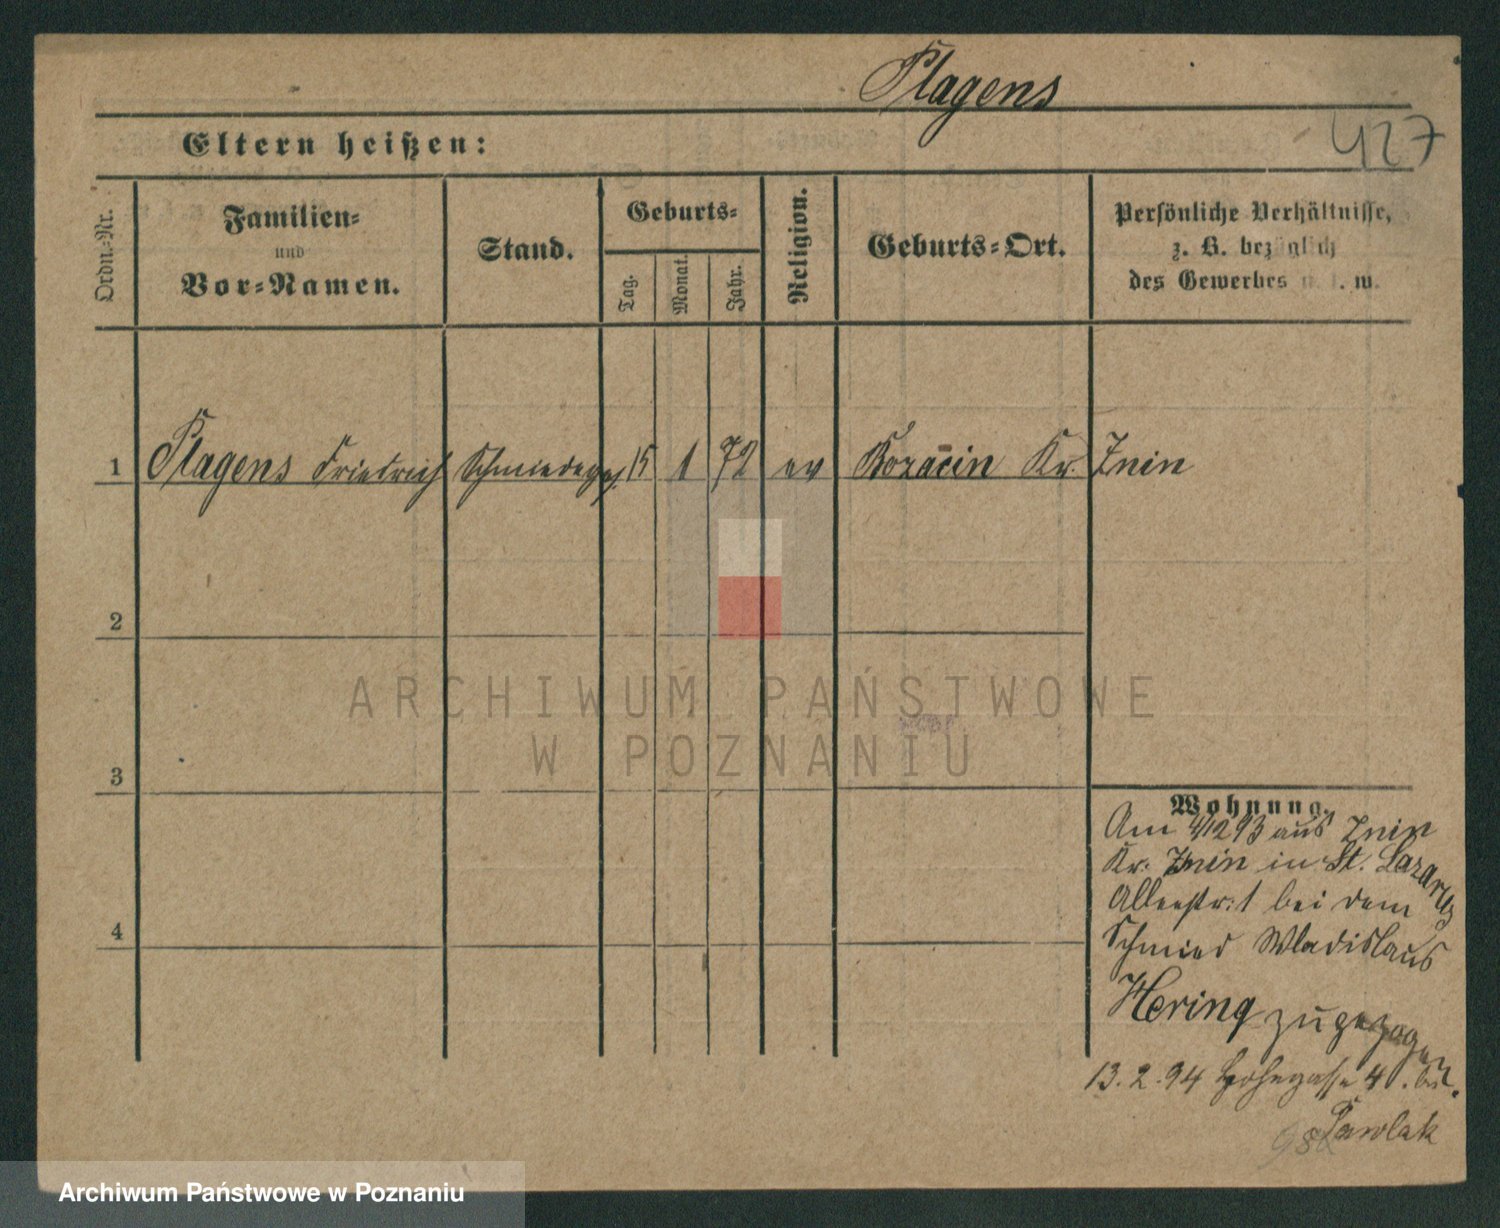 Plagens
427
Eltern heißen:
Ordn.-Nr.
Familien-
und
Vor-Namen.
Stand.
Geburts-
Tag.
Monat.
Jahr.
Religion.
Geburts-Ort.
Persönliche Verhältnisse,
z. B. bezüglich
des Gewerbes u. s. w.
1 Plagens Friedrich Schmiedeges. 15 1 72 ev Kr. Znin
2
3
4
ARCHIWUM PAŃSTWOWE
W POZNANIU
Wohnung.
Am 4/12 93 aus Znin
Kr. Znin in St. Lazarus
Alleestr. 1 bei dem
Schmied Wladislaus
Hering zugezogen
13. 2. 94 4. bei
Pawlak
Archiwum Państwowe w Poznaniu